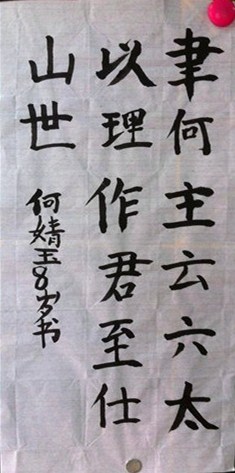 聿何主云六太
以理作君至仕
山世
何婧玉8岁书